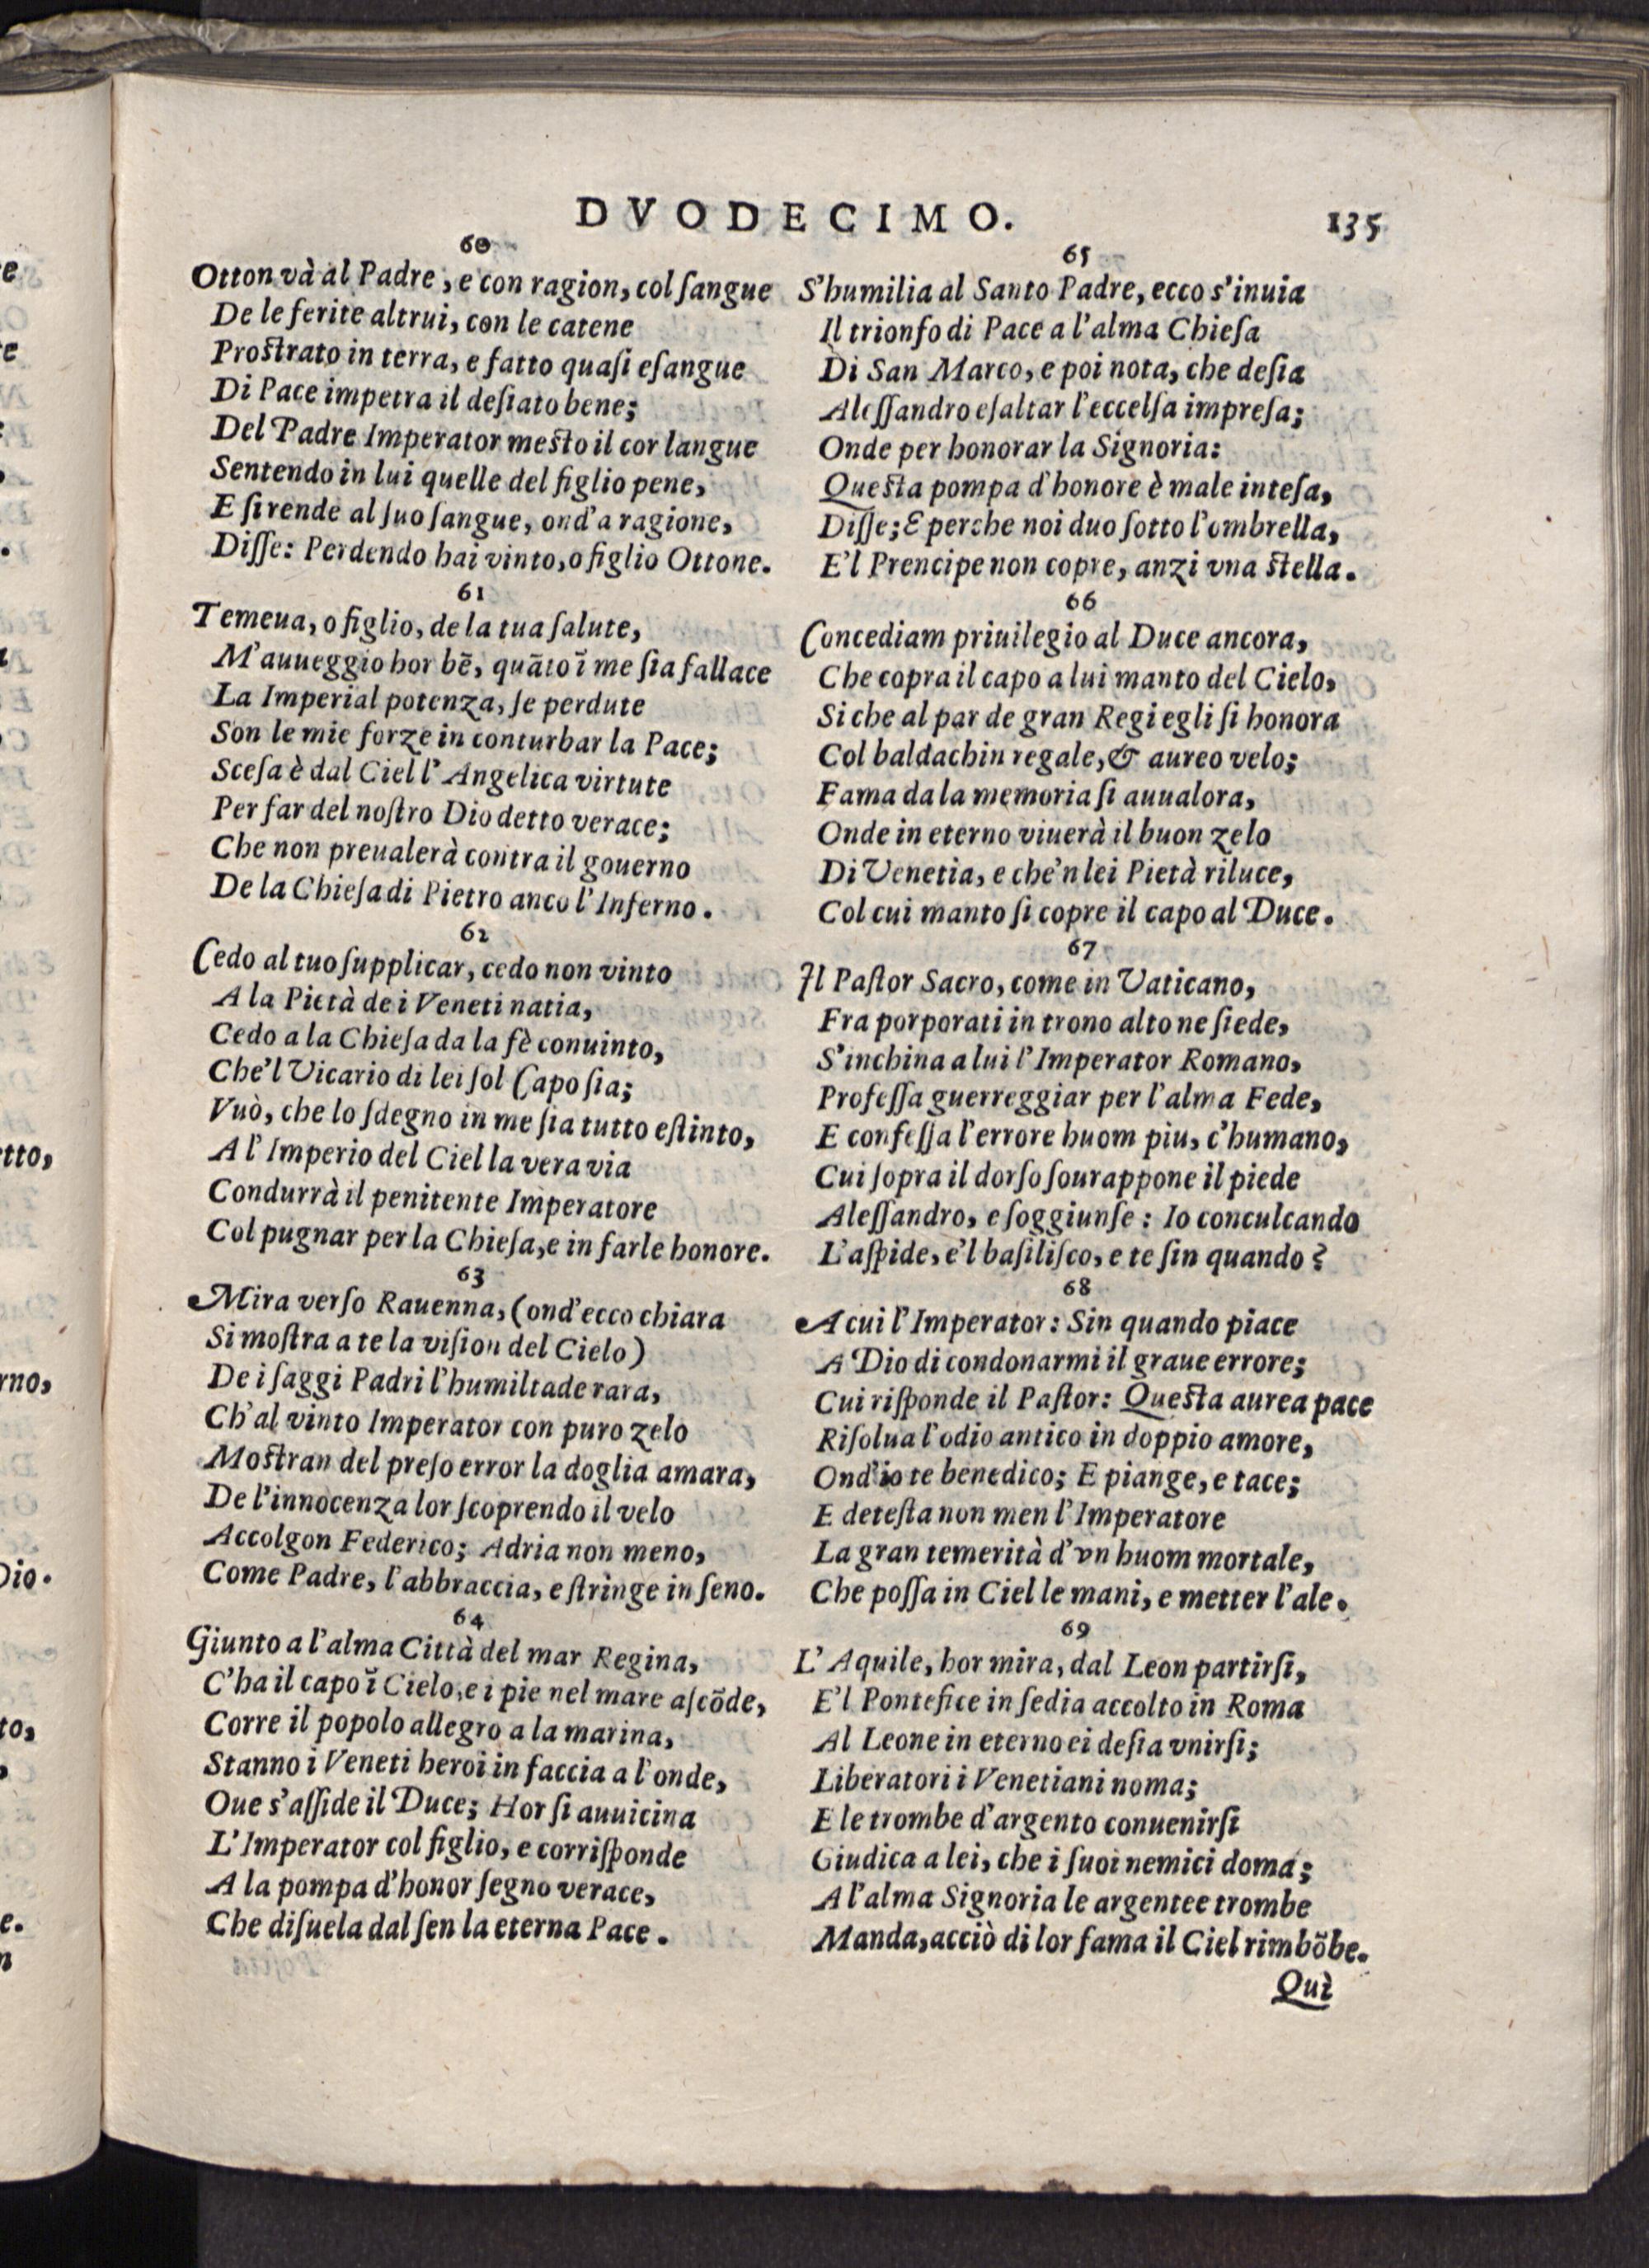 DVODECIMO.
135
60
Otton và al Padre, e con ragion, col ſangue
De le ferite altrui, con le catene
Proſtrato in terra, e fatto quaſi eſangue
Di Pace impetra il deſiato bene;
Del Padre Imperator meſto il cor langue
Sentendo in lui quelle del figlio pene,
E ſi rende al ſuo ſangue, ond'a ragione,
Diſſe: Perdendo hai vinto, o figlio Ottone.
61
Temeua, o figlio, de la tua ſalute,
M'auueggio hor bē, quāto ī me ſia fallace
La Imperial potenza, ſe perdute
Son le mie forze in conturbar la Pace;
Sceſa è dal Ciel l'Angelica virtute
Per far del noſtro Dio detto verace;
Che non preualerà contra il gouerno
De la Chieſa di Pietro anco l'Inferno.
62
Cedo al tuo ſupplicar, cedo non vinto
A la Pietà de i Veneti natia,
Cedo a la Chieſa da la fè conuinto,
Che'l Vicario di lei ſol Capo ſia;
Vuò, che lo ſdegno in me ſia tutto eſtinto,
A l'Imperio del Ciel la vera via
Condurrà il penitente Imperatore
Col pugnar per la Chieſa, e in farle honore.
63
Mira verſo Rauenna, (ond'ecco chiara
Si moſtra a te la viſion del Cielo)
De i ſaggi Padri l'humiltade rara,
Ch'al vinto Imperator con puro zelo
Moſtran del preſo error la doglia amara,
De l'innocenza lor ſcoprendo il velo
Accolgon Federico; Adria non meno,
Come Padre, l'abbraccia, e ſtringe in ſeno.
64
Giunto a l'alma Città del mar Regina,
C'ha il capo ī Cielo, e i pie nel mare aſcōde,
Corre il popolo allegro a la marina,
Stanno i Veneti heroi in faccia a l'onde,
Oue s'aſſide il Duce; Hor ſi auuicina
L'Imperator col figlio, e corriſponde
A la pompa d'honor ſegno verace,
Che diſuela dal ſen la eterna Pace.
65
S'humilia al Santo Padre, ecco s'inuia
Il trionfo di Pace a l'alma Chieſa
Di San Marco, e poi nota, che deſia
Aleſſandro eſaltar l'eccelſa impreſa;
Onde per honorar la Signoria:
Queſta pompa d'honore è male inteſa,
Diſſe; E perche noi duo ſotto l'ombrella,
E'l Prencipe non copre, anzi vna ſtella.
66
Concediam priuilegio al Duce ancora,
Che copra il capo a lui manto del Cielo,
Si che al par de gran Regi egli ſi honora
Col baldachin regale, & aureo velo;
Fama da la memoria ſi auualora,
Onde in eterno viuerà il buon zelo
Di Venetia, e che'n lei Pietà riluce,
Col cui manto ſi copre il capo al Duce.
67
Il Paſtor Sacro, come in Vaticano,
Fra porporati in trono alto ne ſiede,
S'inchina a lui l'Imperator Romano,
Profeſſa guerreggiar per l'alma Fede,
E confeſſa l'errore huom piu, c'humano,
Cui ſopra il dorſo ſourappone il piede
Aleſſandro, e ſoggiunſe: Io conculcando
L'aſpide, e'l baſiliſco, e te ſin quando?
68
A cui l'Imperator: Sin quando piace
A Dio di condonarmi il graue errore;
Cui riſponde il Paſtor: Queſta aurea pace
Riſolua l'odio antico in doppio amore,
Ond'io te benedico; E piange, e tace;
E deteſta non men l'Imperatore
La gran temerità d'vn huom mortale,
Che poſſa in Ciel le mani, e metter l'ale.
69
L'Aquile, hor mira, dal Leon partirſi,
E'l Pontefice in ſedia accolto in Roma
Al Leone in eterno ei deſia vnirſi;
Liberatori i Venetiani noma;
E le trombe d'argento conuenirſi
Giudica a lei, che i ſuoi nemici doma;
A l'alma Signoria le argentee trombe
Manda, acciò di lor fama il Ciel rimbōbe.
Quì